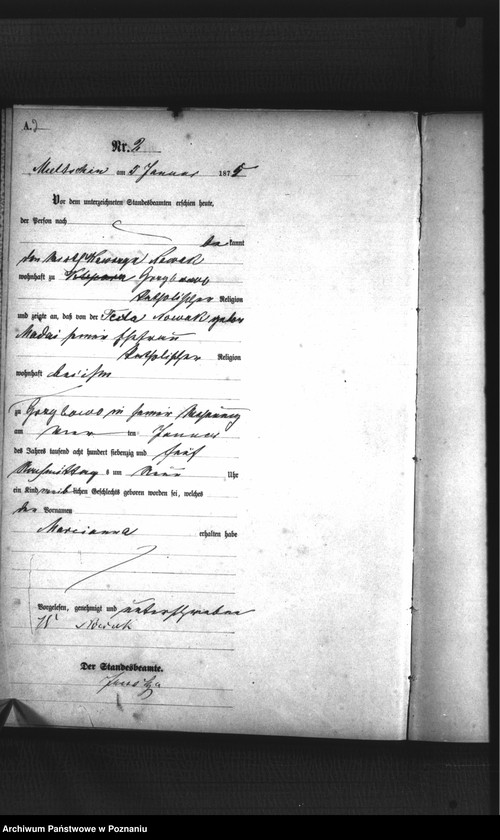 A. 2
Nr. 2
am 5 Januar 1875
Vor dem unterzeichneten Standesbeamten erschien heute,
der Person nach
kannt
Nowak
wohnhaft zu Grzybowo
katholischer Religion
und zeigte an, daß von der Nowak
seiner Ehefrau
katholischer Religion
wohnhaft bei ihm
zu Grzybowo in seiner Wohnung
am ten Januar
des Jahres tausend acht hundert siebenzig und fünf
Nachmittag s um Uhr
ein Kind weiblichen Geschlechts geboren worden sei, welches
den Vornamen
Marcianna
erhalten habe
Vorgelesen, genehmigt und unterschrieben
Nowak
Der Standesbeamte.
Archiwum Państwowe w Poznaniu